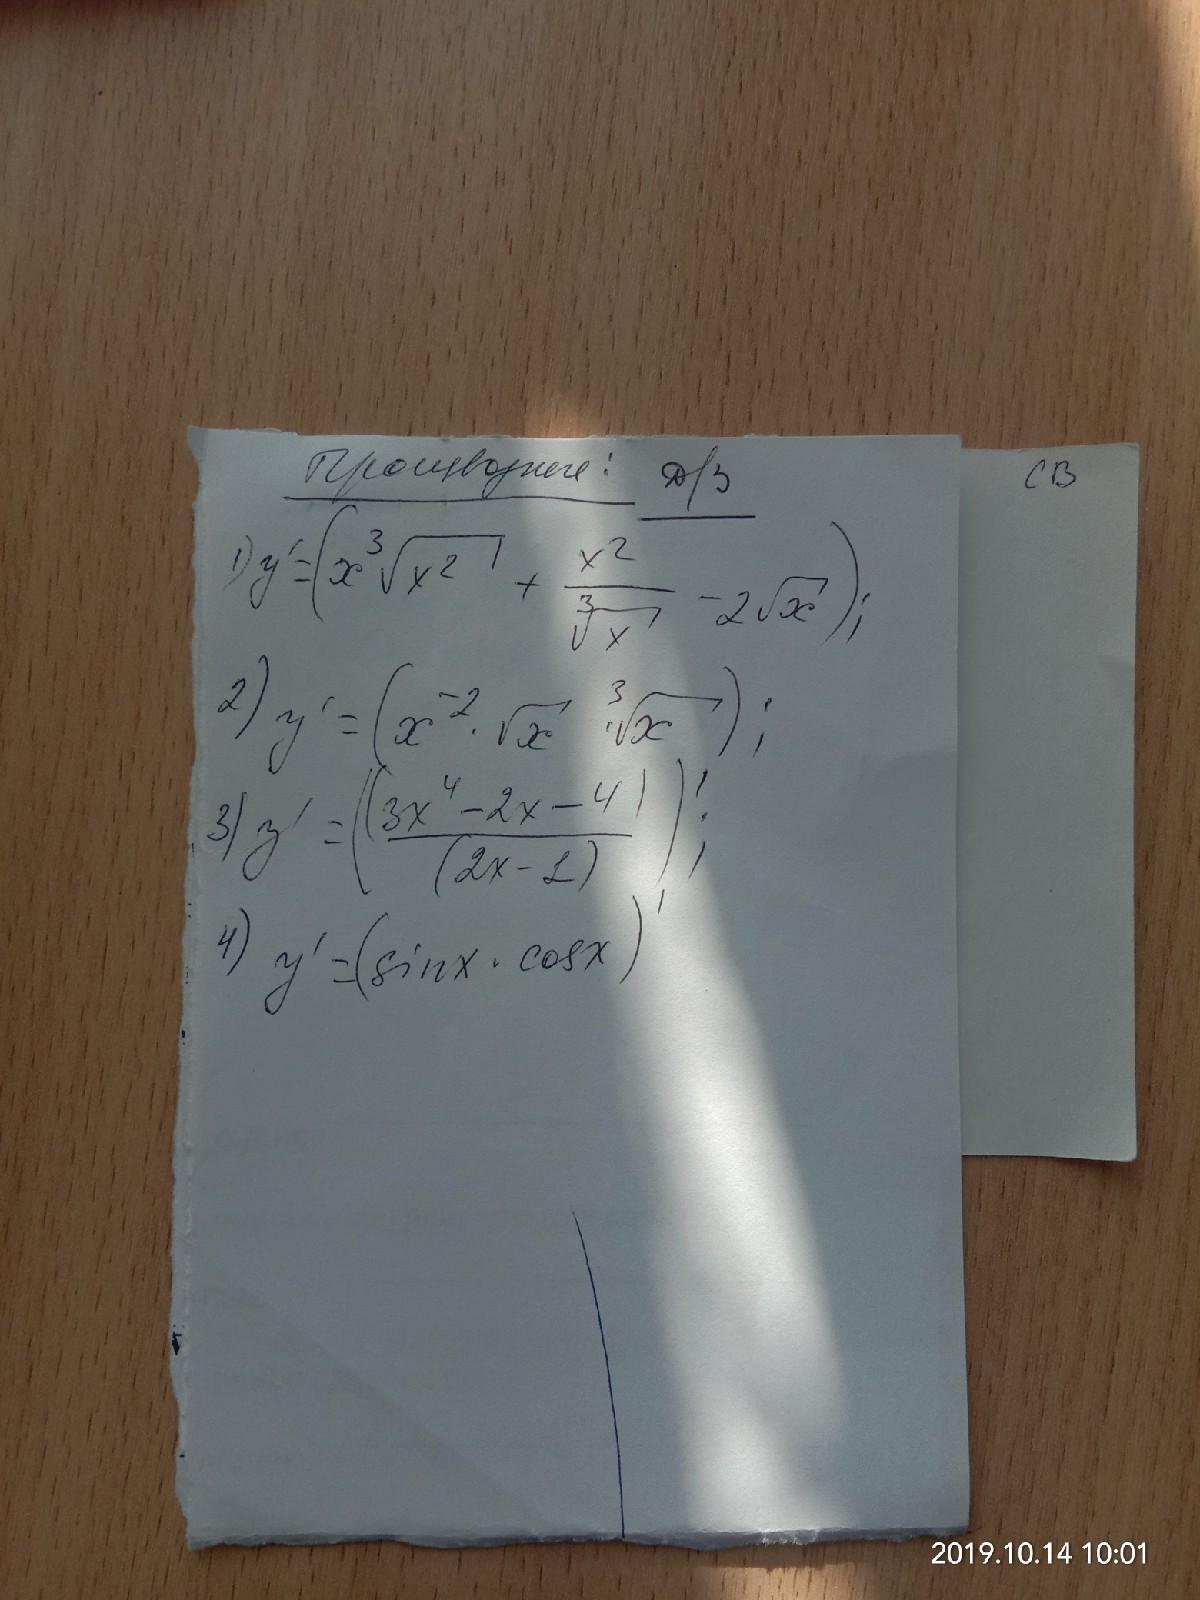 Производные: Д/З
СВ
1) y' = (x ∛x² + x²/∛x - 2√x);
2) y' = (x⁻² · √x · ∛x);
3) y' = ((3x⁴ - 2x - 4)/(2x - 1))';
4) y' = (sinx · cosx)'
2019.10.14 10:01